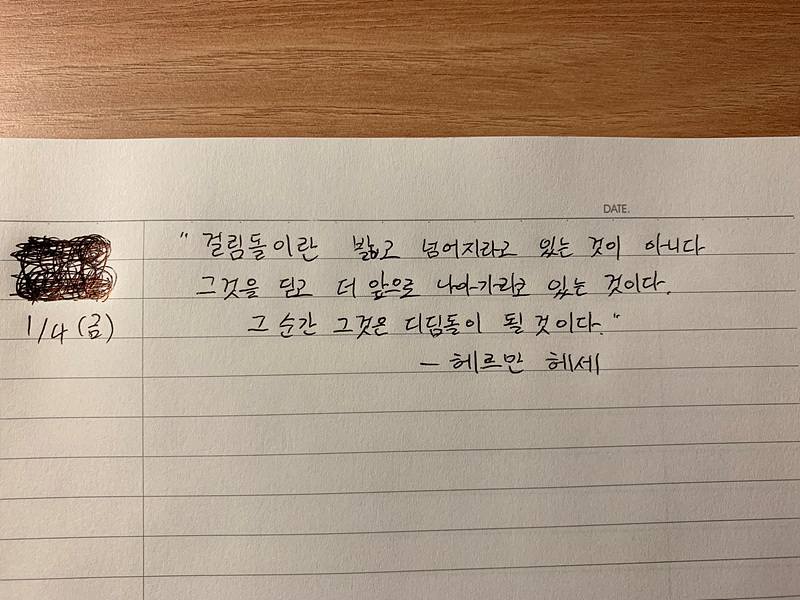 DATE.
"걸림돌이란 밟고 넘어지라고 있는 것이 아니다
그것을 딛고 더 앞으로 나아가라고 있는 것이다.
1/4 (금)
그 순간 그것은 디딤돌이 될 것이다."
- 헤르만 헤세